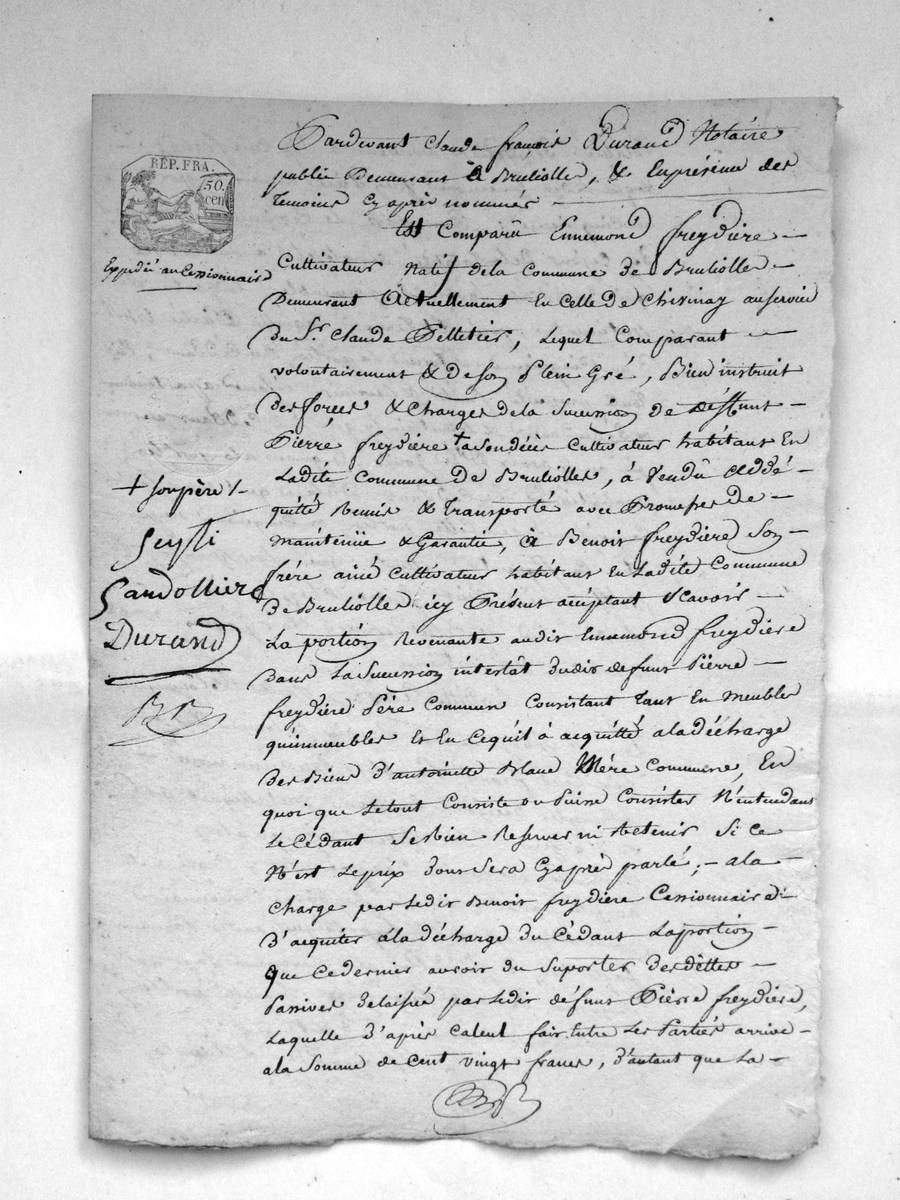 REP. FRA.
50.
cen
Expédié au Cessionnaire
Pardevant Claude françois Durand Notaire
public Demeurant à Brulliolle, & En présence des
Temoins Cy après nommés —
Est Comparû Ennemond freydière —
Cultivateur Natif de la Commune de Brulliolles —
Demeurant Actuellement En Celle De Chevinay au service
Du Sr. Claude Pelletier, Lequel Comparant —
volontairement & de Son Plein Gré, Bien instruit
Des forces & Charges de la Succession de déffunt —
Pierre freydière + a Son décès Cultivateur habitant En
Ladite Commune De Brulliolles, à Vendû Cédé
quitté Remis & Transporté avec Promesse De —
Maintenüe & Garantie, à Benoit freydière Son —
frère ainé Cultivateur habitant En Ladite Commune
De Brulliolle icy Présent acceptant Scavoir —
La portion Revenante audit Ennemond freydière
Dans La Succession intestât dudit defunt Pierre —
freydière Père Commun Consistant Tant En Meubles
qu'immeubles Et En Ce quil à acquitté a la décharge
Des Biens D'antoinette Blanc Mère Commune, En
quoi que Letout Consiste ou Puisse Consister N'entendant
Le Cédant Se Rien Reserver ni Retenir Si Ce
N'est Le prix dont Sera Cy après parlé, — a la —
Charge par Ledit Benoit freydière Cessionnaire
D'acquiter à la décharge du Cédant La portion —
que Ce dernier auroit du Suporter Des dêttes —
Passives Delaissée par Ledit défunt Pierre freydière,
Laquelle D'après Calcul fait Entre Les Parties arrive
a la Somme de Cent vingt francs, D'autant que La —
+ Son père /-
Seyti
Gandolliere
Durand